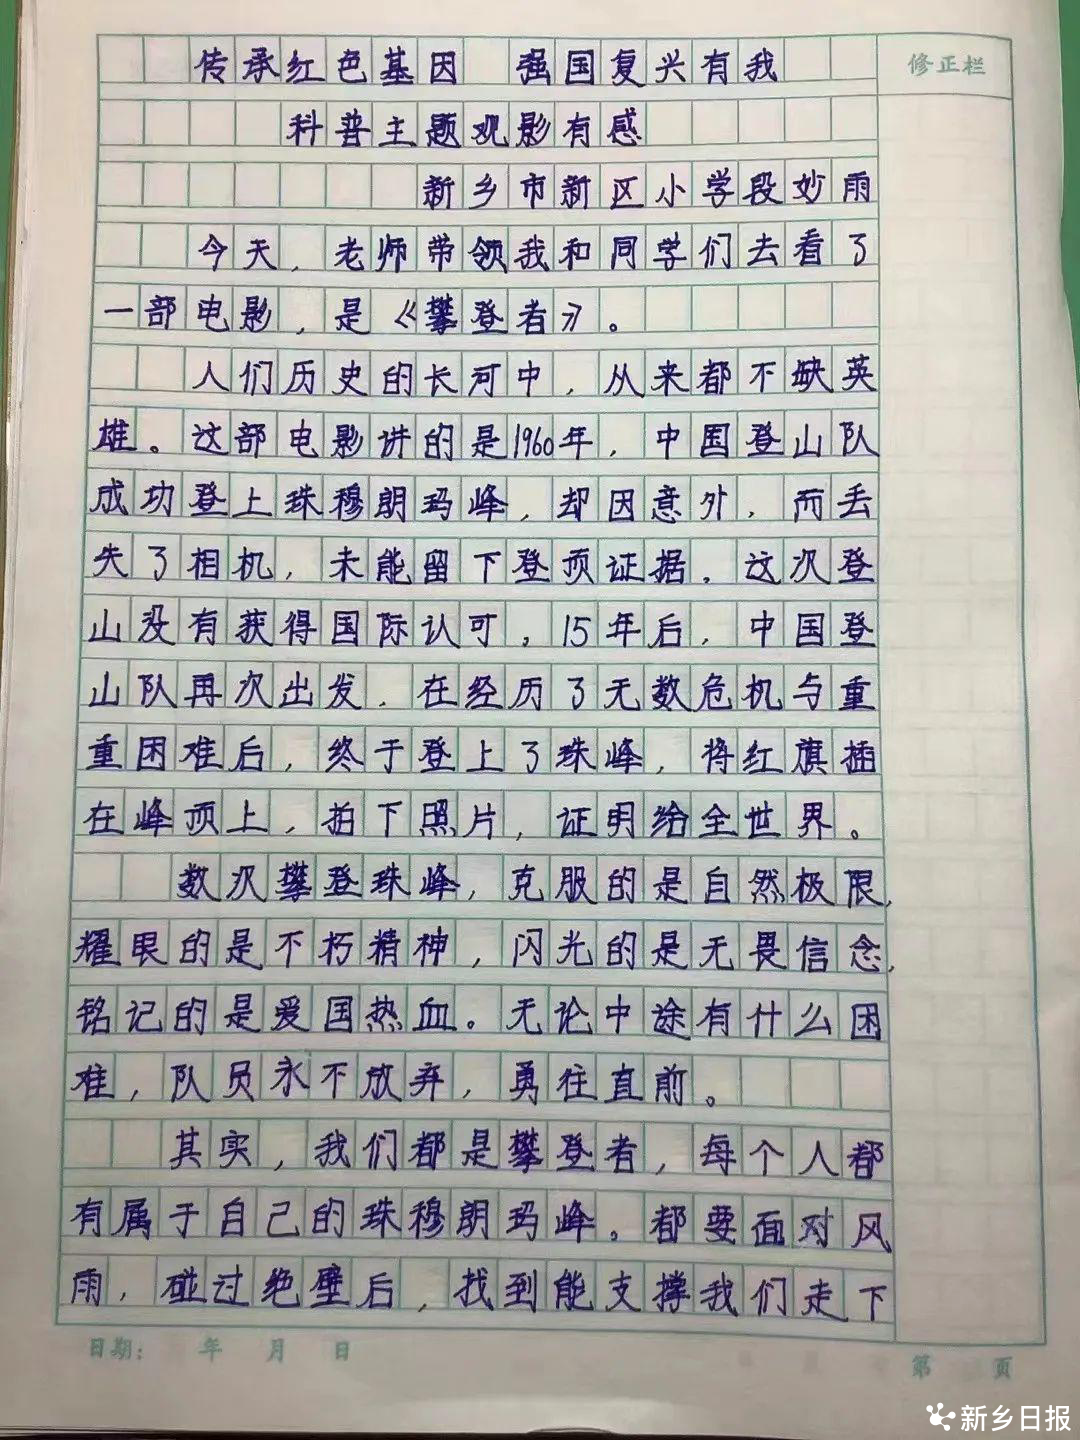 传承红色基因 强国复兴有我
修正栏
科普主题观影有感
新乡市新区小学段妙雨
今天，老师带领我和同学们去看了
一部电影，是《攀登者》。
人们历史的长河中，从来都不缺英
雄。这部电影讲的是1960年，中国登山队
成功登上珠穆朗玛峰，却因意外，而丢
失了相机，未能留下登顶证据。这次登
山没有获得国际认可，15年后，中国登
山队再次出发，在经历了无数危机与重
重困难后，终于登上了珠峰，将红旗插
在峰顶上，拍下照片，证明给全世界。
数次攀登珠峰，克服的是自然极限，
耀眼的是不朽精神，闪光的是无畏信念，
铭记的是爱国热血。无论中途有什么困
难，队员永不放弃，勇往直前。
其实，我们都是攀登者，每个人都
有属于自己的珠穆朗玛峰。都要面对风
雨，碰过绝壁后，找到能支撑我们走下
日期： 年 月 日
第 页
新乡日报